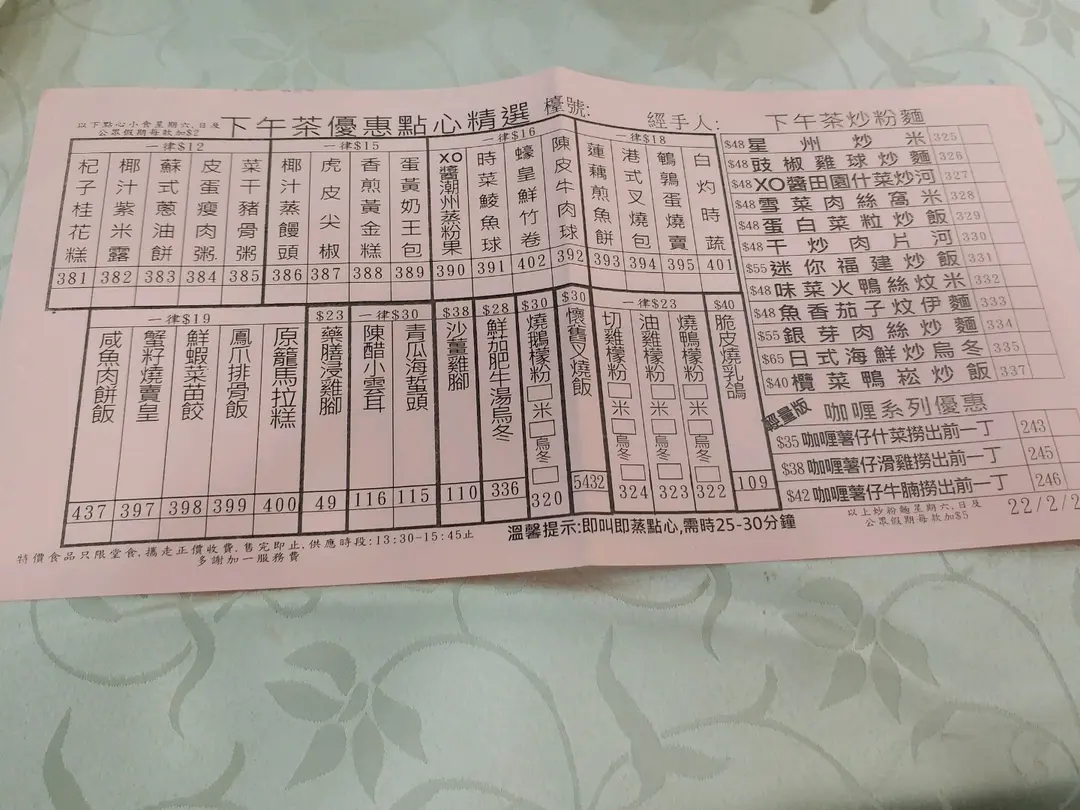 以下點心小食星期六,日及
公眾假期每款加$2
下午茶優惠點心精選
檯號:
經手人:
一律$12
杞子桂花糕 381
椰汁紫米露 382
蘇式蔥油餅 383
皮蛋瘦肉粥 384
菜干豬骨粥 385
一律$15
椰汁蒸饅頭 386
虎皮尖椒 387
香煎黃金糕 388
蛋黃奶王包 389
一律$16
XO醬潮州蒸粉果 390
時菜鯪魚球 391
蠔皇鮮竹卷 402
陳皮牛肉球 392
一律$18
蓮藕煎魚餅 393
港式叉燒包 394
鵪鶉蛋燒賣 395
白灼時蔬 401
一律$19
咸魚肉餅飯 437
蟹籽燒賣皇 397
鮮蝦菜苗餃 398
鳳爪排骨飯 399
原籠馬拉糕 400
$23
藥膳浸雞腳 49
一律$30
陳醋小雲耳 116
青瓜海蜇頭 115
$38
沙薑雞腳 110
$28
鮮茄肥牛湯烏冬 336
$30
燒鵝檬粉 米 烏冬 320
$30
懷舊叉燒飯 5432
一律$23
切雞檬粉 米 烏冬 324
油雞檬粉 米 烏冬 323
燒鴨檬粉 米 烏冬 322
$40
脆皮燒乳鴿 109
下午茶炒粉麵
$48 星州炒米 325
$48 豉椒雞球炒麵 326
$48 XO醬田園什菜炒河 327
$48 雪菜肉絲窩米 328
$48 蛋白菜粒炒飯 329
$48 干炒肉片河 330
$55 迷你福建炒飯 331
$48 味菜火鴨絲炆米 332
$48 魚香茄子炆伊麵 333
$55 銀芽肉絲炒麵 334
$65 日式海鮮炒烏冬 335
$40 欖菜鴨崧炒飯 337
輕量版
咖喱系列優惠
$35 咖喱薯仔什菜撈出前一丁 243
$38 咖喱薯仔滑雞撈出前一丁 245
$42 咖喱薯仔牛腩撈出前一丁 246
以上炒粉麵星期六,日及
公眾假期每款加$5
22/2/2
溫馨提示:即叫即蒸點心,需時25-30分鐘
特價食品只限堂食,攜走正價收費.售完即止.供應時段:13:30-15:45止
多謝加一服務費